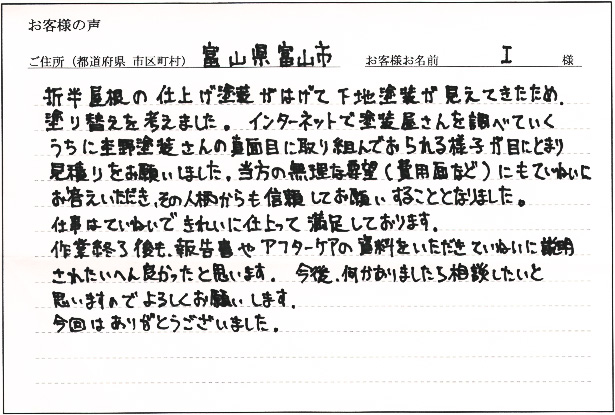 お客様の声
ご住所（都道府県 市区町村） 富山県富山市 お客様お名前 I 様
折半屋根の仕上げ塗装がはげて下地塗装が見えてきたため、
塗り替えを考えました。インターネットで塗装屋さんを調べていく
うちに圭野塗装さんの真面目に取り組んでおられる様子が目にとまり
見積りをお願いしました。当方の無理な要望(費用面など)にもていねいに
お答えいただき、その人柄からも信頼してお願いすることとなりました。
仕事はていねいできれいに仕上って満足しております。
作業終了後も、報告書やアフターケアの資料をいただきていねいに説明
されたいへん良かったと思います。 今後、何かありましたら相談したいと
思いますのでよろしくお願いします。
今回はありがとうございました。